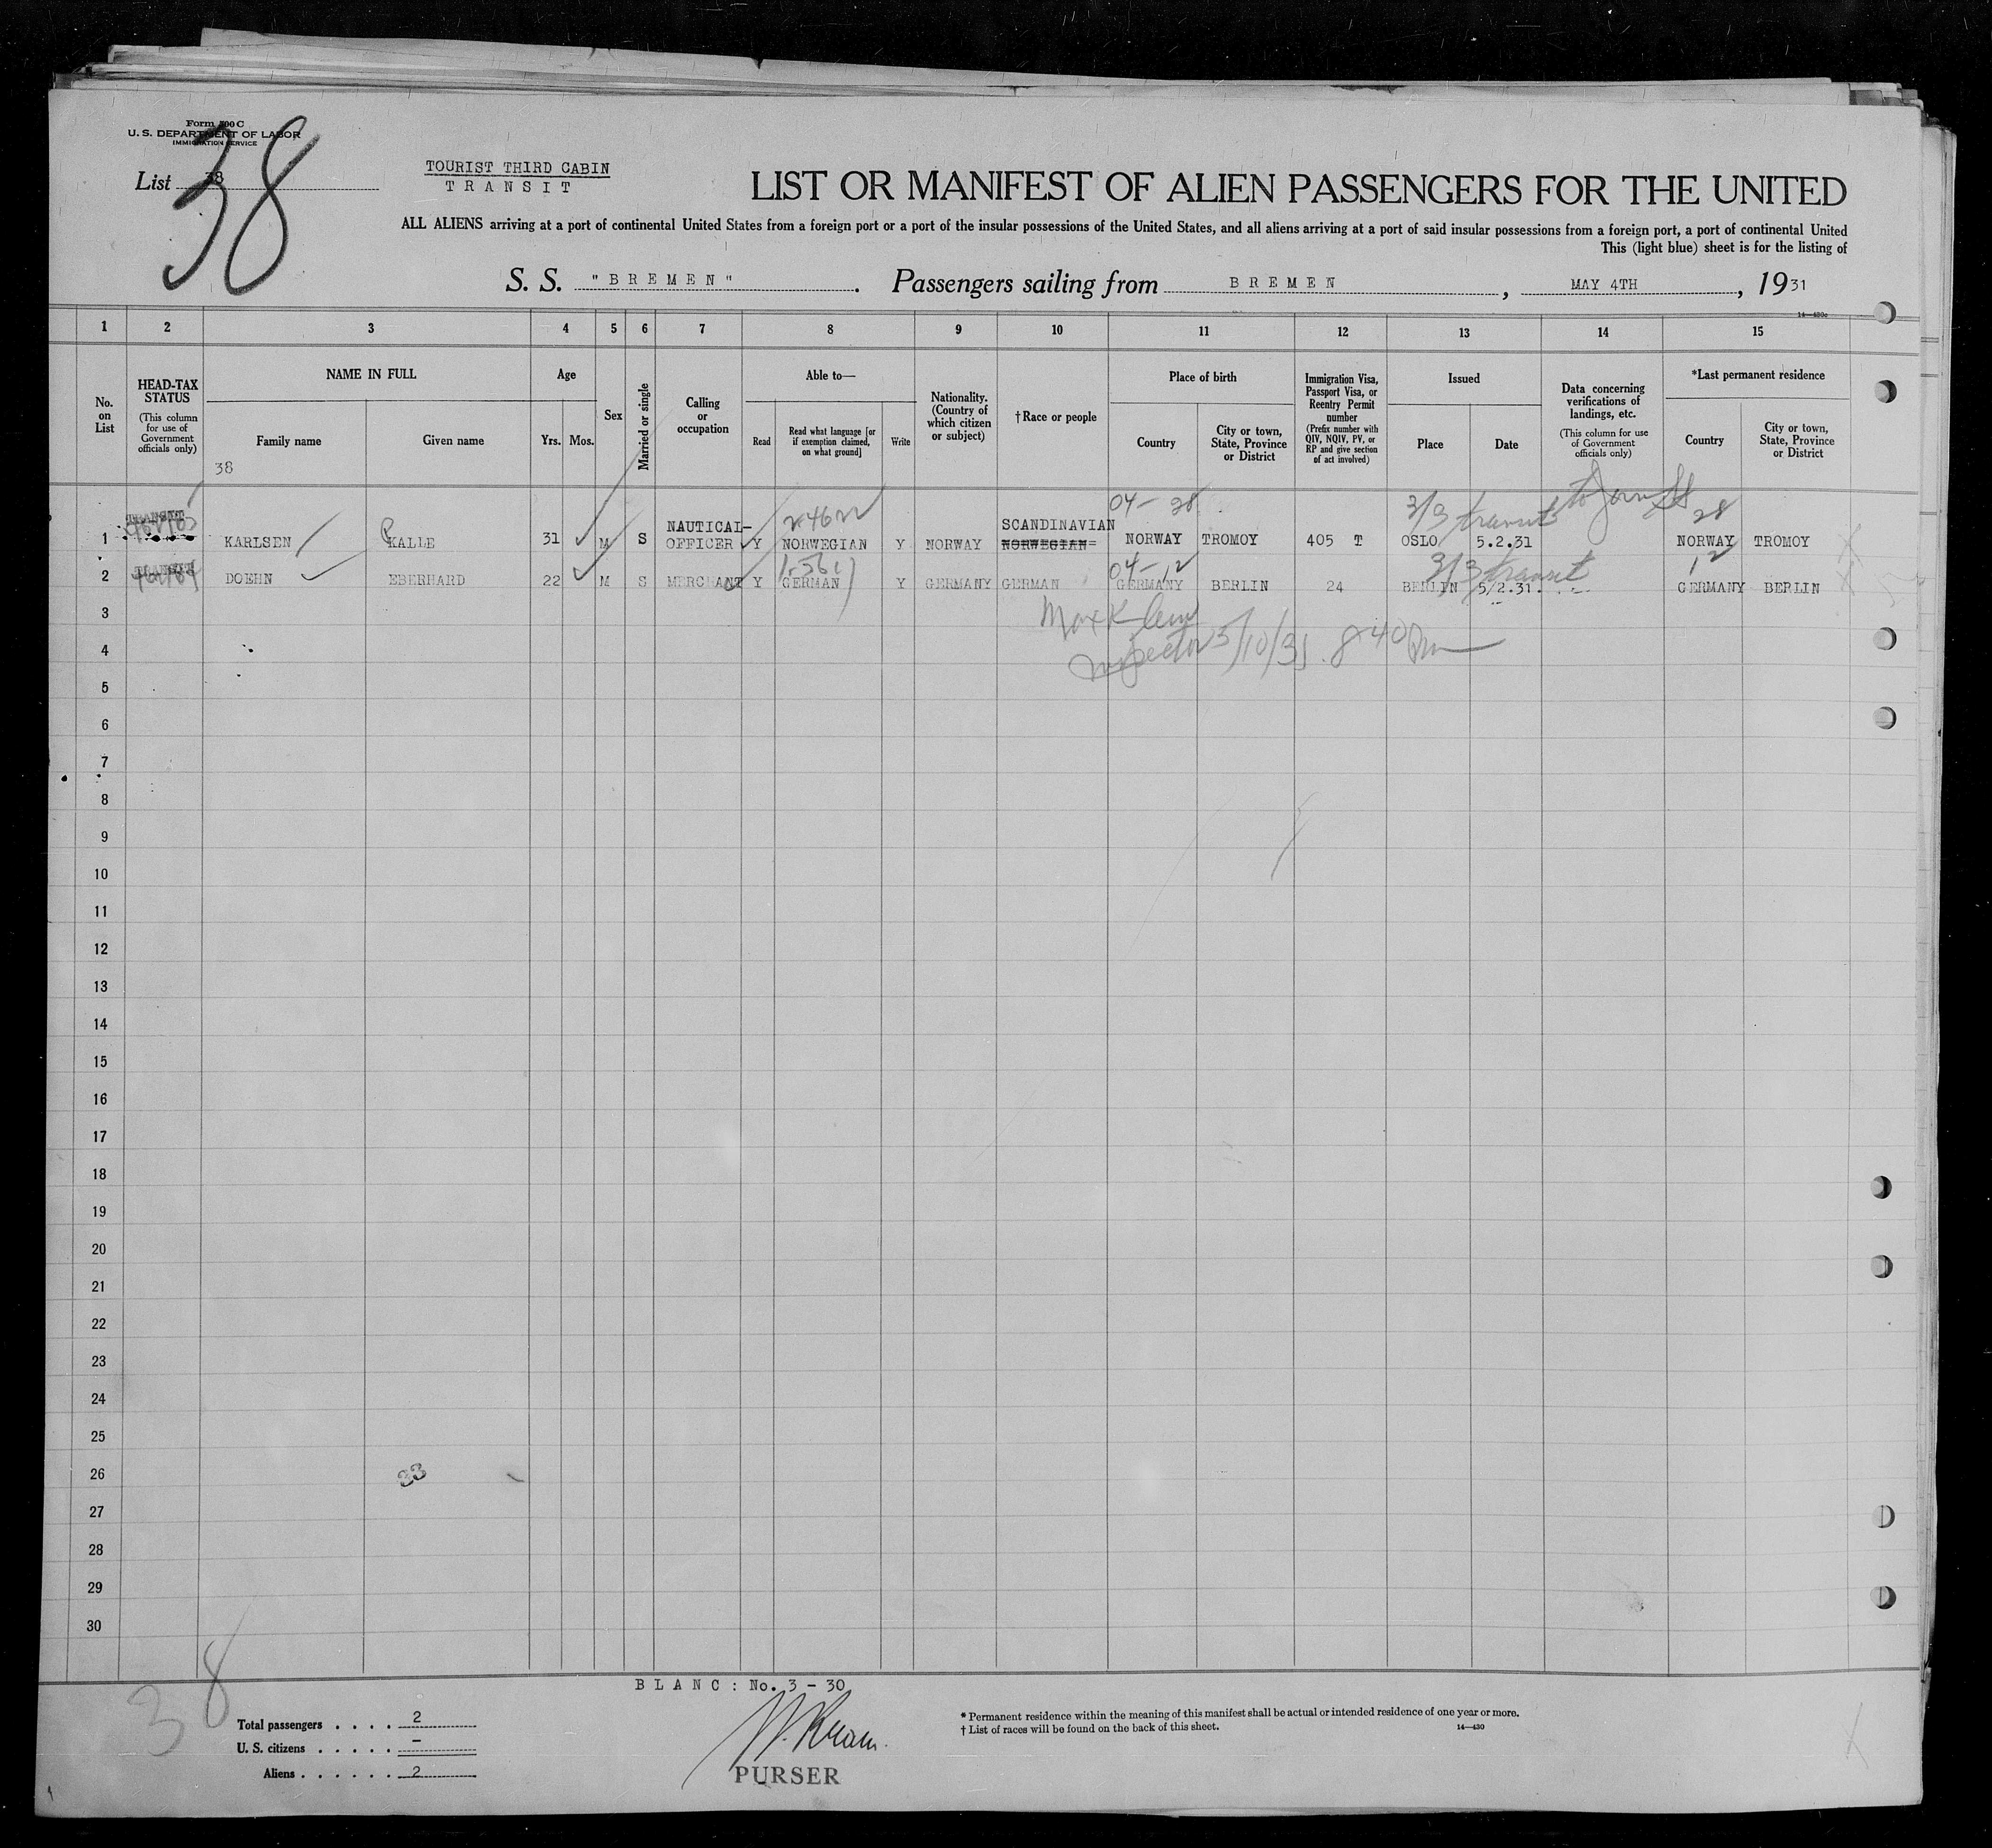 Form 500 C
U. S. DEPARTMENT OF LABOR
IMMIGRATION SERVICE
List 38
38
TOURIST THIRD CABIN
TRANSIT
LIST OR MANIFEST OF ALIEN PASSENGERS FOR THE UNITED
ALL ALIENS arriving at a port of continental United States from a foreign port or a port of the insular possessions of the United States, and all aliens arriving at a port of said insular possessions from a foreign port, a port of continental United
This (light blue) sheet is for the listing of
S. S. "BREMEN". Passengers sailing from BREMEN, MAY 4TH, 1931
14—430c
1 2 3 4 5 6 7 8 9 10 11 12 13 14 15
No. on List
HEAD-TAX STATUS (This column for use of Government officials only)
NAME IN FULL
Family name
Given name
Age
Yrs. Mos.
Sex
Married or single
Calling or occupation
Able to—
Read
Read what language [or if exemption claimed, on what ground]
Write
Nationality. (Country of which citizen or subject)
†Race or people
Place of birth
Country
City or town, State, Province or District
Immigration Visa, Passport Visa, or Reentry Permit number (Prefix number with QIV, NQIV, PV, or RP and give section of act involved)
Issued
Place
Date
Data concerning verifications of landings, etc. (This column for use of Government officials only)
*Last permanent residence
Country
City or town, State, Province or District
38
04- 28 3/3 transit to join SS 28
1 TRANSIT KARLSEN KALLE 31 M S NAUTICAL-OFFICER Y NORWEGIAN Y NORWAY SCANDINAVIAN NORWEGIAN NORWAY TROMOY 405 T OSLO 5.2.31 NORWAY TROMOY
04- 12 3/3 transit 12
2 TRANSIT DOEHN EBERHARD 22 M S MERCHANT Y GERMAN Y GERMANY GERMAN GERMANY BERLIN 24 BERLIN 5/2.31. GERMANY BERLIN
3
Max Klein
4
Inspector 5/10/31 8 40 Pm
5
6
7
8
9
10
11
12
13
14
15
16
17
18
19
20
21
22
23
24
25
26 33
27
28
29
30
38
BLANC: No. 3 - 30
Total passengers . . . . 2
U. S. citizens . . . . . -
Aliens . . . . . . 2
PURSER
* Permanent residence within the meaning of this manifest shall be actual or intended residence of one year or more.
† List of races will be found on the back of this sheet.
14—430